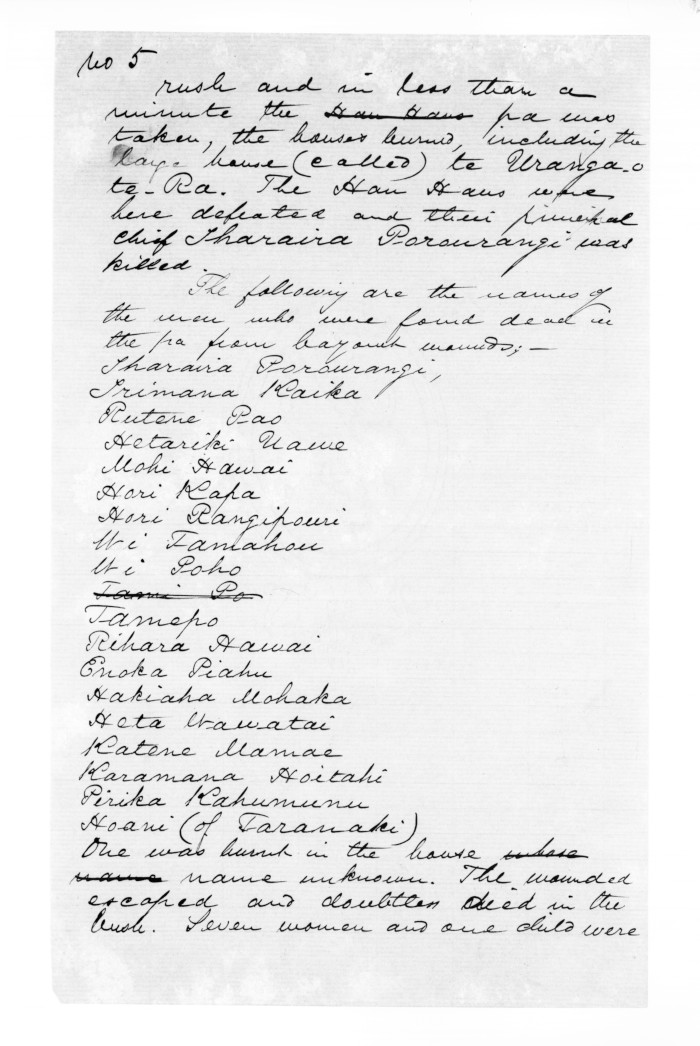 No 5
rush and in less than a
minute the Hau Haus pa was
taken, the houses burned, including the
large house (called) te Uranga-o
te-Ra. The Hau Haus were
here defeated and their principal
chief Iharaira Porourangi was
killed.
The following are the names of
the men who were found dead in
the pa from bayonet wounds; —
Iharaira Porourangi,
Irimana Kaika
Rutene Rao
Hetariki Uawe
Mohi Hawai
Hori Kapa
Hori Rangipouri
Wi Tamahou
Wi Poho
Tami Po
Tamepo
Rihara Hawai
Enoka Piahu
Hakiaha Mohaka
Heta Wawatai
Katene Mamae
Karamana Hoitahi
Pirika Kahumunu
Hoani (of Taranaki)
One was burnt in the house whose
name name unknown. The wounded
escaped and doubtless died in the
bush. Seven women and one child were